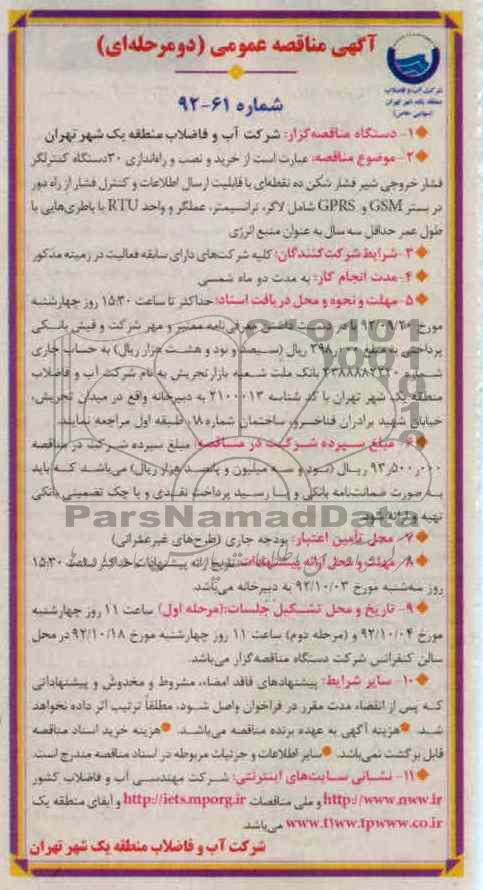 آگهی مناقصه عمومی (دومرحله‌ای)
شرکت آب و فاضلاب
منطقه یک شهر تهران
(سهامی خاص)
شماره ۶۱-۹۲
۱- دستگاه مناقصه‌گزار: شرکت آب و فاضلاب منطقه یک شهر تهران
۲- موضوع مناقصه: عبارت است از خرید و نصب و راه‌اندازی ۳۰دستگاه کنترلگر
فشار خروجی شیر فشار شکن ده نقطه‌ای با قابلیت ارسال اطلاعات و کنترل فشار از راه دور
در بستر GSM و GPRS شامل لاگر، ترانسمیتر، عملگر و واحد RTU با باطری‌هایی با
طول عمر حداقل سه سال به عنوان منبع انرژی
۳- شرایط شرکت‌کنندگان: کلیه شرکت‌های دارای سابقه فعالیت در زمینه مذکور
۴- مدت انجام کار: به مدت دو ماه شمسی
۵- مهلت و نحوه و محل دریافت اسناد: حداکثر تا ساعت ۱۵:۳۰ روز چهارشنبه
مورخ ۹۲/۰۹/۲۰ با در دست داشتن معرفی‌نامه معتبر و مهر شرکت و فیش بانکی
پرداختی به مبلغ ۳۹۸٫۰۰۰ ریال (سیصد و نود و هشت هزار ریال) به حساب جاری
شماره ۲۳۸۸۸۸۲۲۲۰ بانک ملت شعبه بازار تجریش به نام شرکت آب و فاضلاب
منطقه یک شهر تهران با کد شناسه ۲۱۰۰۰۱۳ به دبیرخانه واقع در میدان تجریش،
خیابان شهید برادران فناخسرو، ساختمان شماره ۱۸، طبقه اول مراجعه نمایند.
۶- مبلغ سپرده شرکت در مناقصه: مبلغ سپرده شرکت در مناقصه
۹۳٫۵۰۰٫۰۰۰ ریال (نود و سه میلیون و پانصد هزار ریال) می‌باشد که باید
به صورت ضمانت‌نامه بانکی و یا رسید پرداخت نقدی و یا چک تضمینی بانکی
تهیه و ارائه شود.
۷- محل تأمین اعتبار: بودجه جاری (طرح‌های غیرعمرانی)
۸- مهلت و محل ارائه پیشنهادات: تاریخ ارائه پیشنهادات حداکثر تا ساعت ۱۵:۳۰
روز سه‌شنبه مورخ ۹۲/۱۰/۰۳ به دبیرخانه می‌باشد.
۹- تاریخ و محل تشکیل جلسات: (مرحله اول) ساعت ۱۱ روز چهارشنبه
مورخ ۹۲/۱۰/۰۴ و (مرحله دوم) ساعت ۱۱ روز چهارشنبه مورخ ۹۲/۱۰/۱۸ در محل
سالن کنفرانس شرکت دستگاه مناقصه‌گزار می‌باشد.
۱۰- سایر شرایط: پیشنهادهای فاقد امضاء، مشروط و مخدوش و پیشنهاداتی
که پس از انقضاء مدت مقرر در فراخوان واصل شود، مطلقاً ترتیب اثر داده نخواهد
شد. هزینه آگهی به عهده برنده مناقصه می‌باشد. هزینه خرید اسناد مناقصه
قابل برگشت نمی‌باشد. سایر اطلاعات و جزئیات مربوطه در اسناد مناقصه مندرج است.
۱۱- نشانی سایت‌های اینترنتی: شرکت مهندسی آب و فاضلاب کشور
http://www.nww.ir و ملی مناقصات http://iets.mporg.ir و آبفای منطقه یک
www.t1ww.tpww.co.ir می‌باشد.
شرکت آب و فاضلاب منطقه یک شهر تهران
ParsNamadData